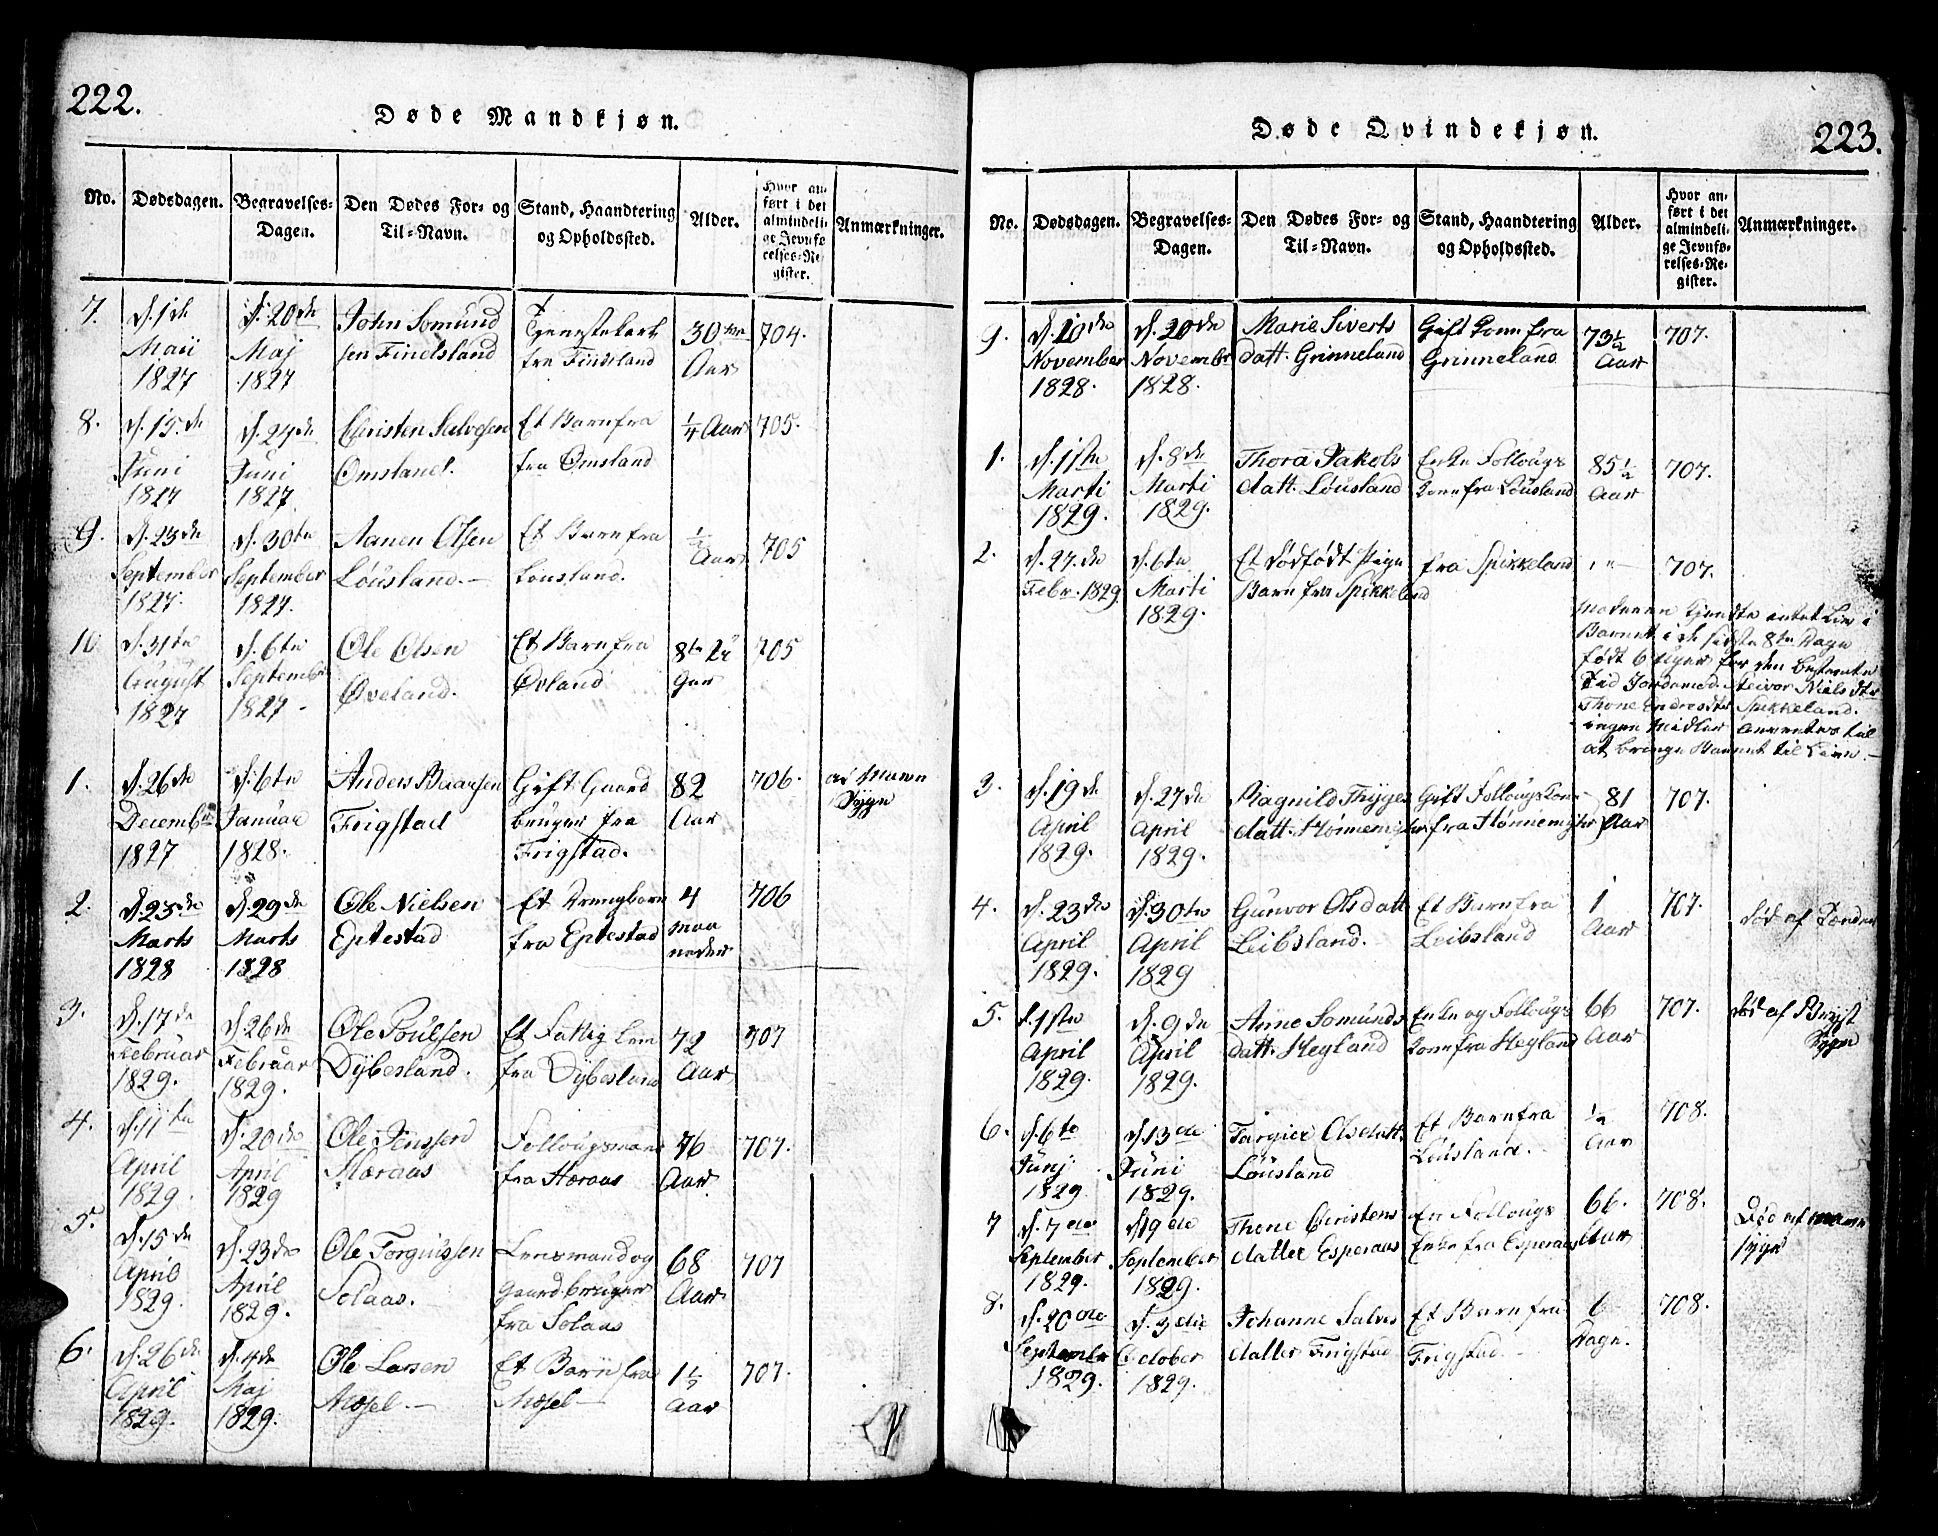 222.
Døde Mandkjøn.
No.
Dødsdagen.
Begravelses-
Dagen.
Den Dødes For- og
Til-Navn.
Stand, Haandtering
og Opholdssted.
Alder.
Hvor an-
ført i det
almindeli-
ge Jevnfø-
relses-Re-
gister.
Anmærkninger.
7.
d. 1de
Maii
1827
d. 20de
Maj
1827
John Somund
sen Findsland
Tjenestekarl
fra Findsland
30
Aar
704.
8.
d. 15de
Juni
1827
d. 24de
Juni
1827.
Christen Salvesen
Omsland.
Et Barn fra
fra Omsland
1/4 Aar
705.
9.
d. 23de
September
1827.
d. 30te
September
1827.
Aanen Olsen
Løusland.
Et Barn fra
Lousland.
1/2
Aar
705
10
d. 31te
August
1827
d. 6te
September
1827
Ole Olsen
Øveland.
Et Barn fra
Øvland
705
1.
d. 26de
December
1827
d. 6te
Januar
1828.
Anders Baarsen
Frigstad
Gift Gaard
bruger fra
Frigstad.
82
Aar
706.
2.
d. 23de
Marts
1828
d. 29de
Marts
1828
Ole Nielsen
Eptestad
Et Drengbarn
fra Eptestad
4
maa
neder
706
3.
d. 17de
Februar
1829.
d. 26de
Februar
1829.
Ole Poulsen
Dybesland.
Et Fattig Lem
fra Dybesland
72
Aar
707
4.
d. 11te
April
1829.
d. 20de
April
1829
Ole Jonssen
Høraas
Follougsmand
fra Høraas
76
Aar.
707.
5.
d. 15de
April
1829.
d. 23de
April
1829.
Ole Torguissen
Solaas.
Lensmand og
Gaardbruger
fra Solaas
68
Aar
707
6.
d. 26de
April
1829.
d. 4de
Maj
1829.
Ole Larsen
Mosel
Et Barn fra
Mosel
1 1/2
Aar
707.
223.
Døde Qvindekjøn.
No.
Dødsdagen.
Begravelses-
Dagen.
Den Dødes For- og
Til-Navn.
Stand, Haandtering
og Opholdssted.
Alder.
Hvor an-
ført i det
almindeli-
ge Jevnfø-
relses-Re-
gister.
Anmærkninger.
9.
d. 10de
November
1828.
d. 20de
November
1828.
Marie Siverts
datt. Grinneland
Gift Kone fra
Grinneland
73 1/2
Aar
707.
1.
d. 1ste
Marti
1829.
d. 8de
Marti
1829.
Thora Jakobs
datt. Løusland
Enke Follougs
Kone fra Løusland
85 1/2
Aar
707.
2.
d. 27de
Febr. 1829
d. 6te
Marti
1829.
Et dødfødt Pige
Barn fra Spikkeland
fra Spikkeland
707.
Moderen kjendte intet Liv i
Barnet i de sidste 8te Dage
født 6 uger før den bestemte
Tid Jordemod. Steivor Nielsdtr
Thone Endresdtr Spikkeland.
ingen Midler anventes til
at bringe Barnet til Live.
3.
d. 19de
April
1829.
d. 27de
April
1829.
Ragnild Thyges
datt. Hønnemyhr
Gift Follougskone
fra Hønnemyhr
81
Aar
707.
4.
d. 23de
April
1829.
d. 30te
April
1829
Gunvor Olsdatt
Leibsland.
Et Barn fra
Leibsland
1
Aar
707.
Død af Tænder
5.
d. 1ste
April
1829.
d. 9de
April
1829.
Anne Somunds
datt. Hegland
Enke og Follougs
Kone fra Hegland
66
Aar
707.
Død af Bryst
Syge
6.
d. 6te
Junj
1829
d. 13de
Juni
1829.
Targier Olsdatt.
Løusland
Et Barn fra
Løusland.
1/2
Aar
708.
7
d. 7de
September
1829.
d. 19de
September
1829.
Thone Christens
datter Esperaas
En Follougs
Enke fra Esperaas
66.
Aar
708.
Død af
syge
8.
d. 20de
September
1829.
d. 3die
October
1829.
Johanne Salves
datter Frigstad
Et Barn fra
Frigstad.
6
Dage.
708.